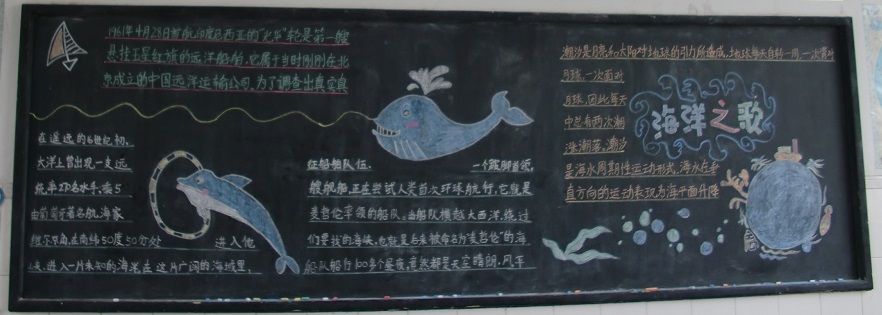 1961年4月28日首航印度尼西亚的"光华"轮是第一艘
悬挂五星红旗的远洋船舶,它属于当时刚刚在北
京成立的中国远洋运输公司,为了调查出真实真
在遥远的16世纪初,
大洋上曾出现一支远
征船船队伍.
一个跛脚首领,
艘帆船,正在尝试人类首次环球航行,它就是
麦哲伦率领的船队。当船队横越大西洋,绕过
们要找的海峡,也就是后来被命名为"麦哲伦"的海
船队船行100多个昼夜,竟然都是天空晴朗,风平
由葡萄牙著名航海家
在南纬50度50分处
进入他
进入一片未知的海洋在这片广阔的海域里,
潮汐是月亮和太阳对地球的引力所造成,地球每天自转一周,一次背对
月球,一次面对
月球,因此每天
中总有两次潮
涨潮落,潮汐
是海水周期性运动形式,海水在垂
直方向的运动表现为海平面升降
海洋之歌